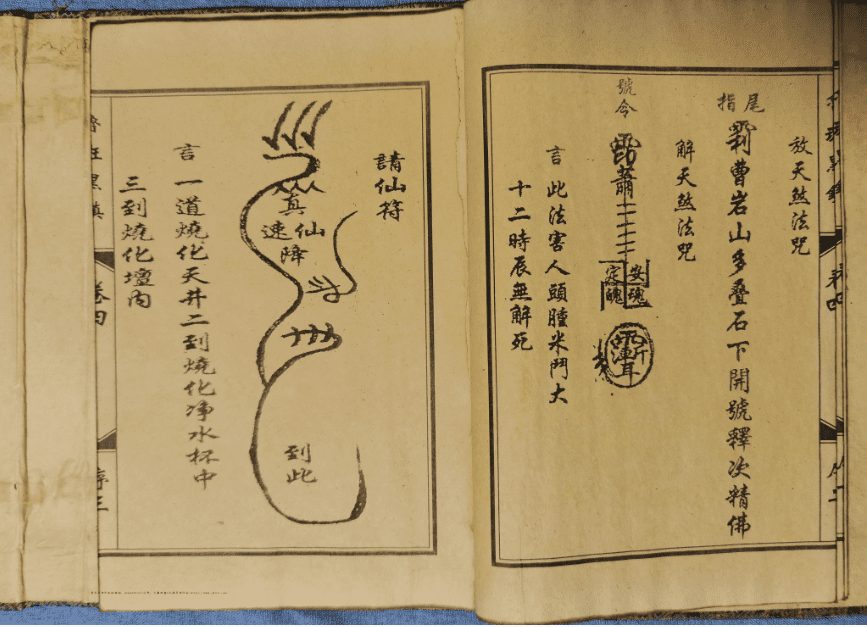 放天煞法咒
尾指
曹岩山多叠石下開號釋次精佛
解天煞法咒
號令
蕭
安魂
定魄
言 此法害人頭腫米鬥大
十二時辰無解死
請仙符
真仙速降
到此
言 一道燒化天井二到燒化净水杯中
三到燒化壇内
卷四